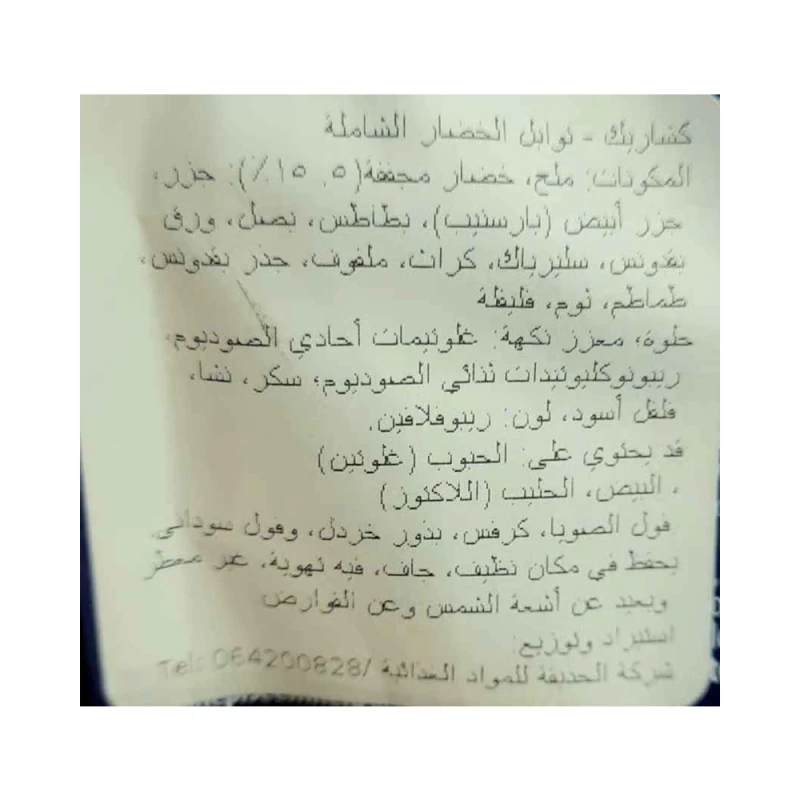 كشاريك - توابل الخضار الشاملة
المكونات: ملح، خضار مجففة(١٥,٥٪): جزر،
جزر أبيض (بارسنيب)، بطاطس، بصل، ورق
بقدونس، سليرياك، كراث، ملفوف، جذر بقدونس،
طماطم، ثوم، فليفلة
حلوة؛ معزز نكهة: غلوتيمات أحادي الصوديوم،
ريبونوكليوتيدات ثنائي الصوديوم؛ سكر، نشا،
فلفل أسود، لون: ريبوفلافين.
قد يحتوي على: الحبوب (غلوتين)
، البيض، الحليب (اللاكتوز)
فول الصويا، كرفس، بذور خردل، وفول سوداني.
يحفظ في مكان نظيف، جاف، فيه تهوية، غير معطر
وبعيد عن أشعة الشمس وعن القوارض
استيراد وتوزيع:
شركة الحديقة للمواد الغذائية /Tel: 064200828